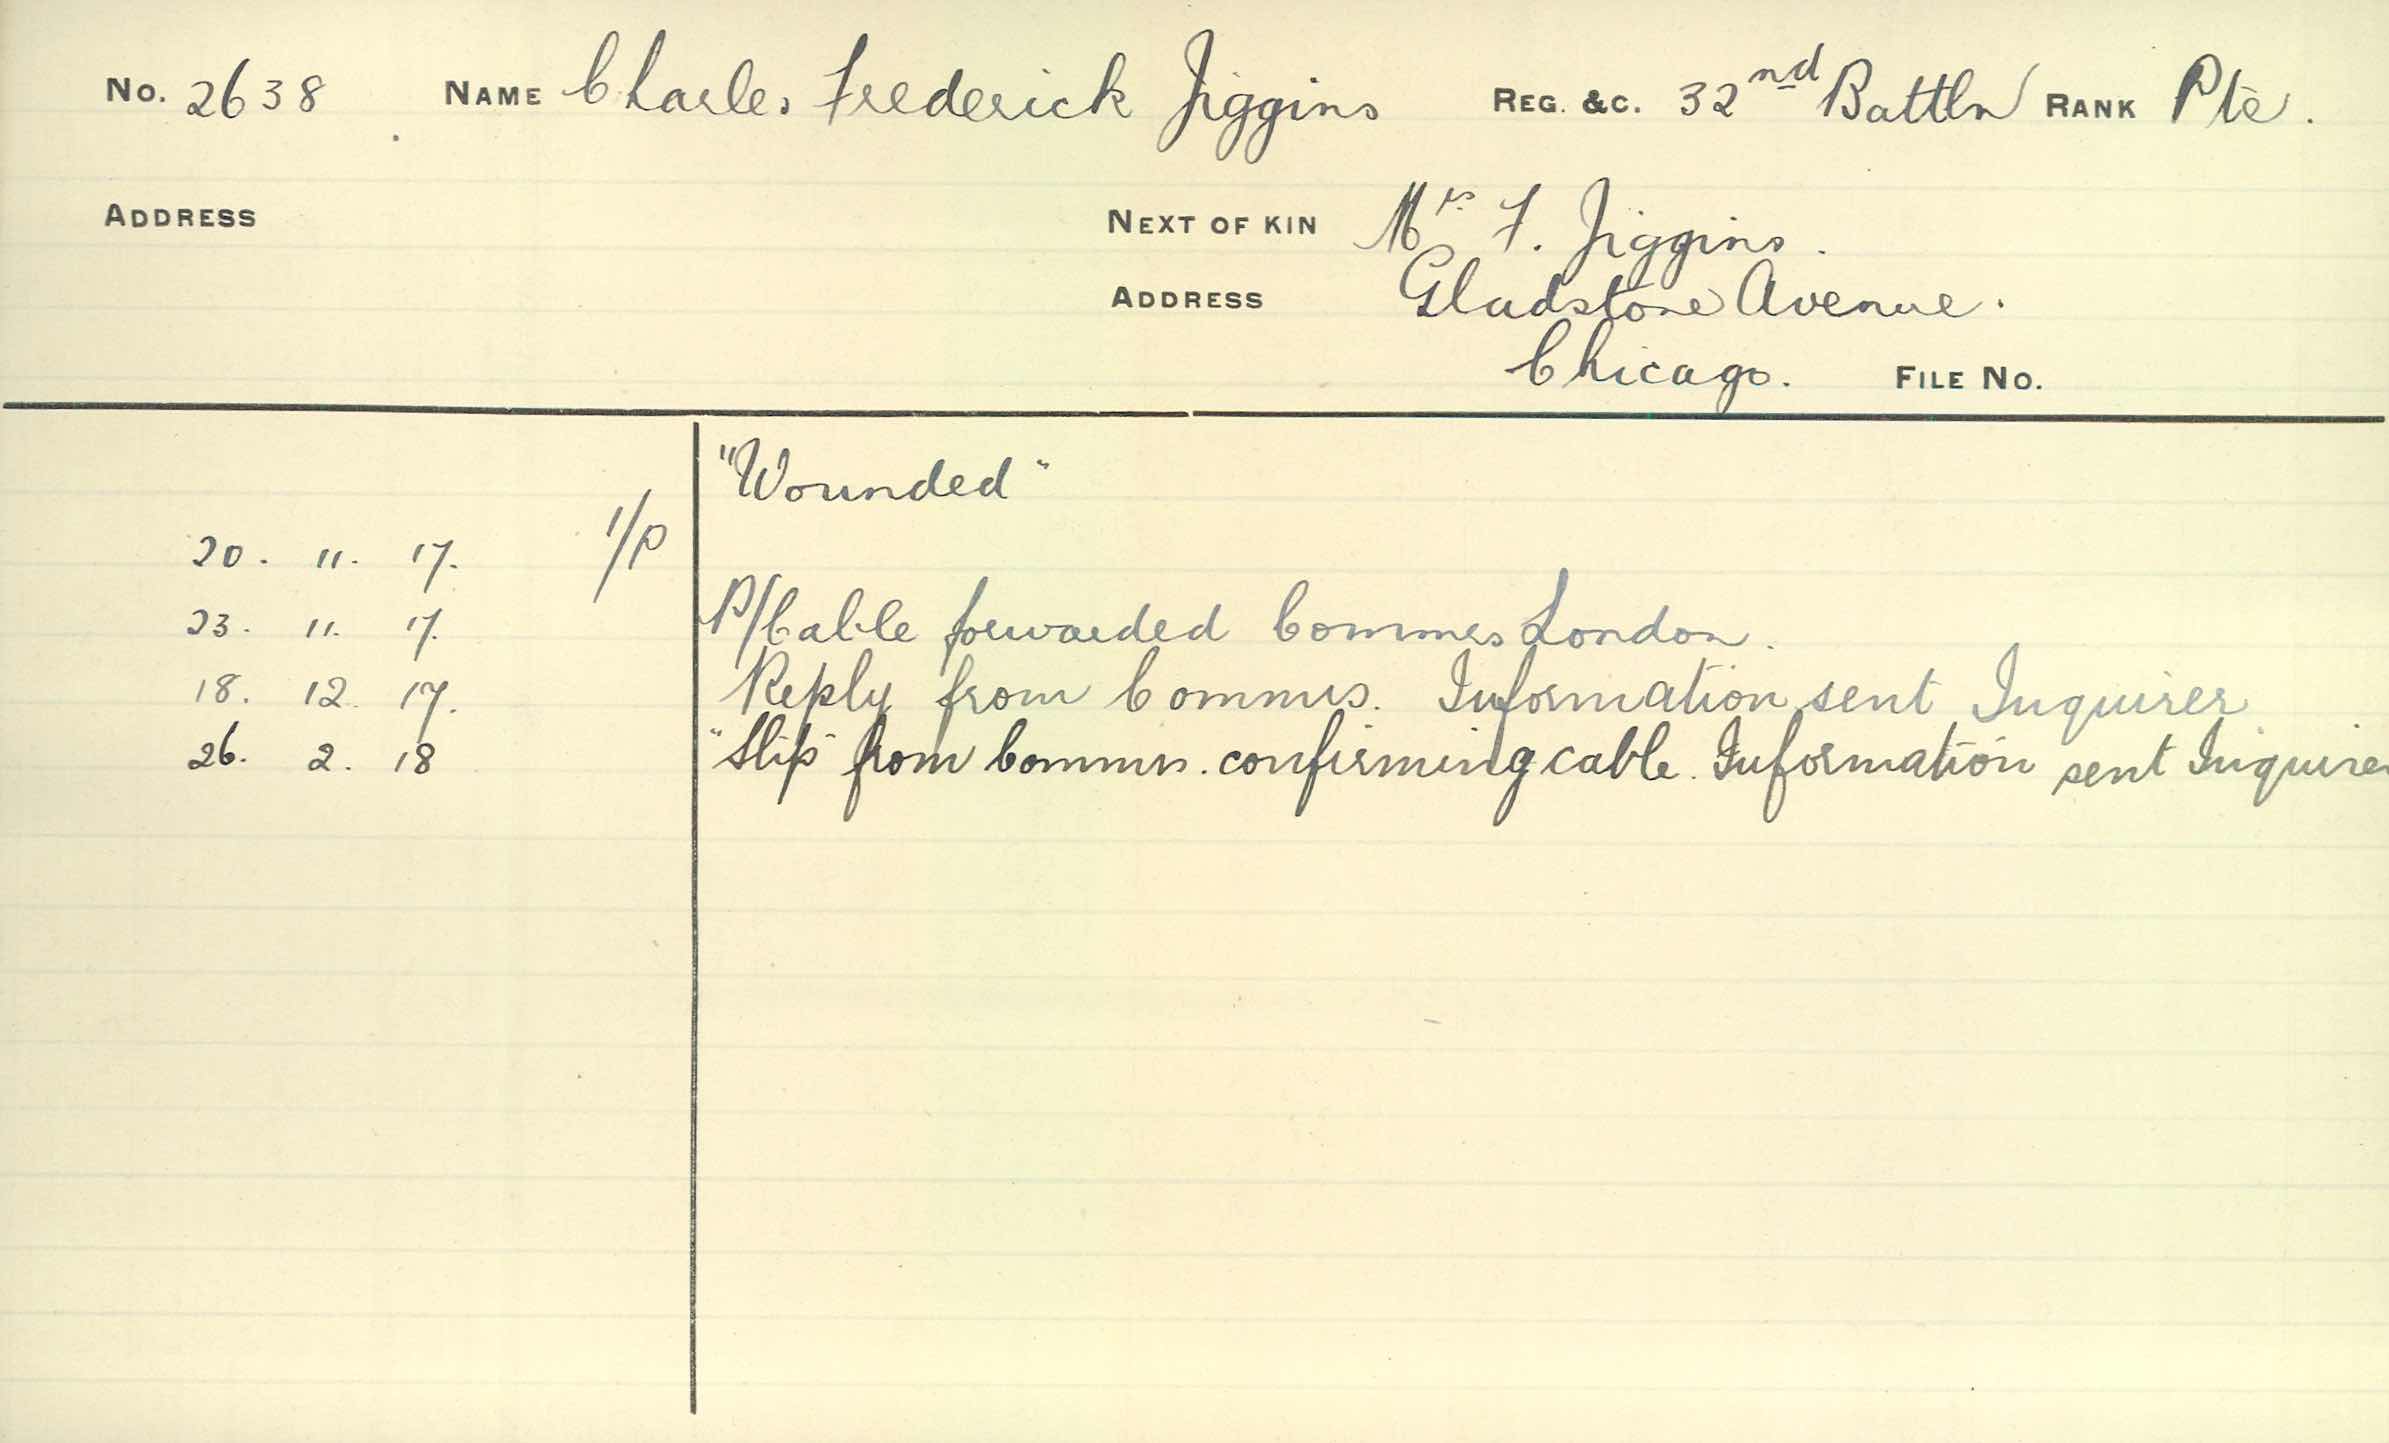 No. 2638 NAME Charles Frederick Jiggins REG. &C. 32nd Battln RANK Pte.
ADDRESS NEXT OF KIN Mrs F. Jiggins.
ADDRESS Gladstone Avenue.
Chicago. FILE No.
"Wounded"
20. 11. 17. 1/P
23. 11. 17. P/Cable forwarded Commrs London.
18. 12. 17. Reply from Commrs. Information sent Inquirer
26. 2. 18 "Slip" from Commrs. confirming cable. Information sent Inquirer